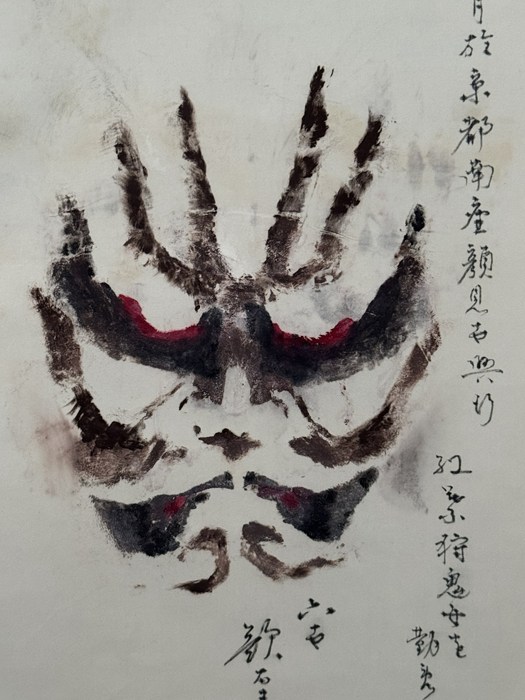 月於京都南座顔見世興行
紅葉狩鬼女を
勤
六世
歌右